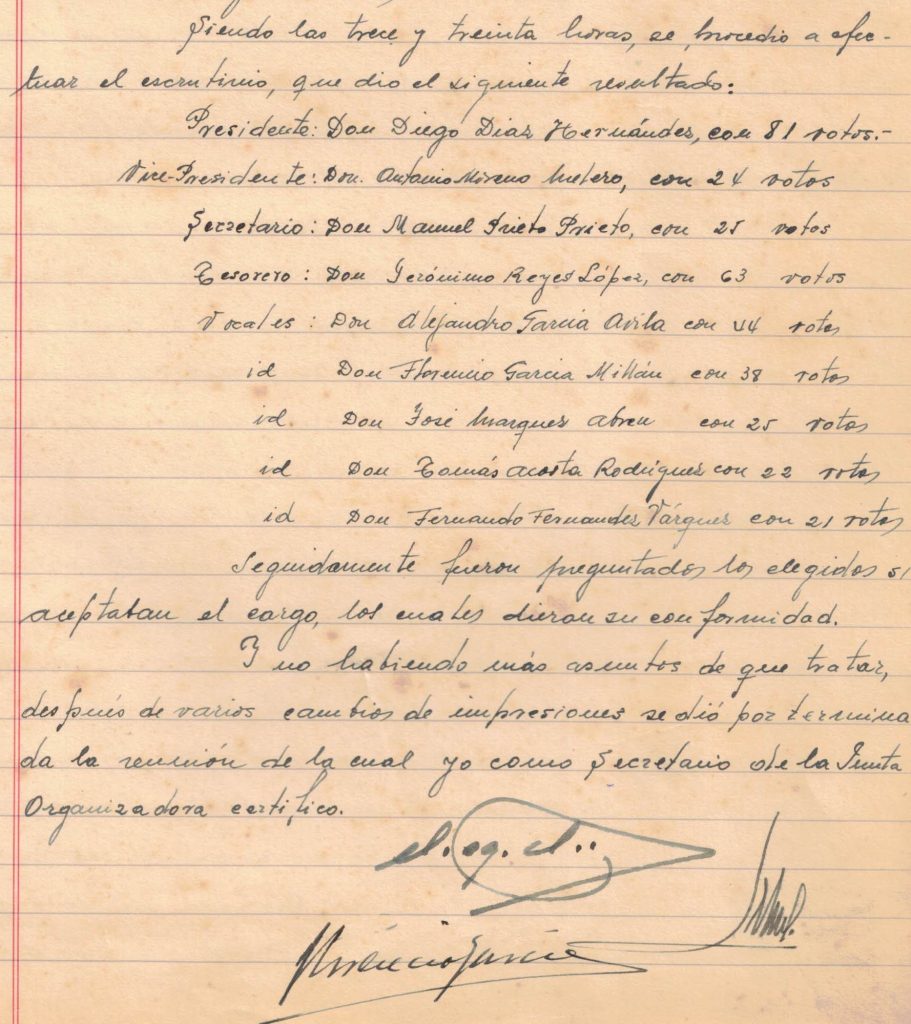 Siendo las trece y treinta horas, se procedio a efec-
tuar el escrutinio, que dio el siguiente resultado:
Presidente: Don Diego Diaz Hernández, con 81 votos.-
Vice-Presidente: Don. Antonio Moreno, con 24 votos
Secretario: Don Manuel Prieto Prieto, con 25 votos
Tesorero: Don Jerónimo Reyes López, con 63 votos
Vocales: Don Alejandro Garcia Avila con 44 votos
id Don Florencio Garcia Millán con 38 votos
id. Don José Marquez Abreu con 25 votos
id Don Tomás Acosta Rodriguez con 22 votos
id Don Fernando Fernandez Vázquez con 21 votos
Seguidamente fueron preguntados los elegidos si
aceptaban el cargo, los cuales dieran su conformidad.
Y no habiendo más asuntos de que tratar,
después de varios cambios de impresiones se dió por termina
da la reunión de la cual yo como Secretario de la Junta
Organizadora certifico.
Florencio Garcia